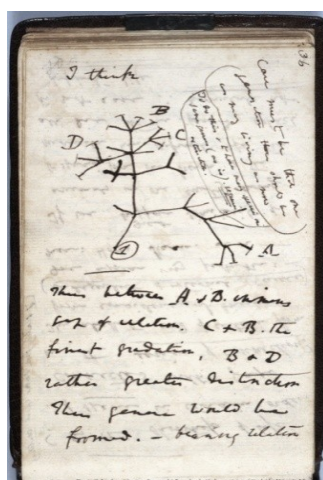 36
I think
Case must be that one
generation then should be
as many living as now
To do this & to have many species in
same genus (as is) requires
extinction.
B
D
C
A
1
Thus between A & B. immens
gap of relation. C & B. the
finest gradation, B & D
rather greater distinction
Thus genera would be
formed. — bearing relation